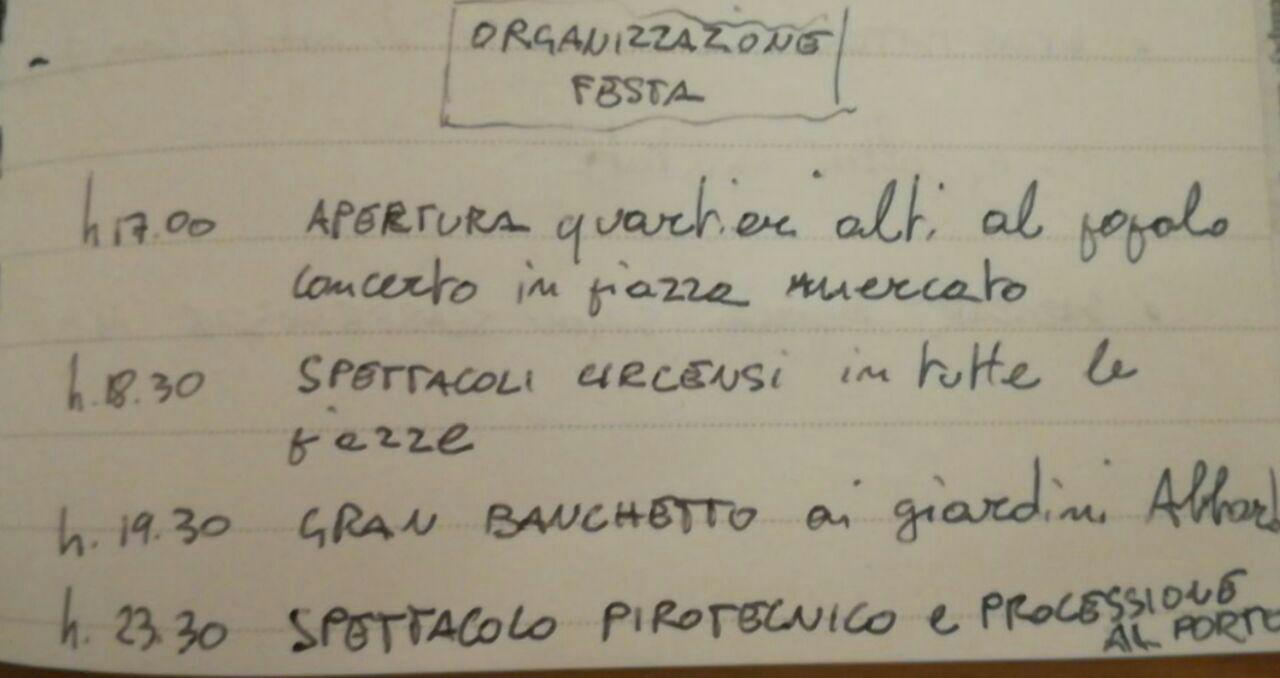 ORGANIZZAZIONE
FESTA
h 17.00 APERTURA quartieri alti al popolo
concerto in piazza mercato
h. 18.30 SPETTACOLI CIRCENSI in tutte le
piazze
h. 19.30 GRAN BANCHETTO ai giardini
h. 23.30 SPETTACOLO PIROTECNICO e PROCESSIONE
AL PORTO